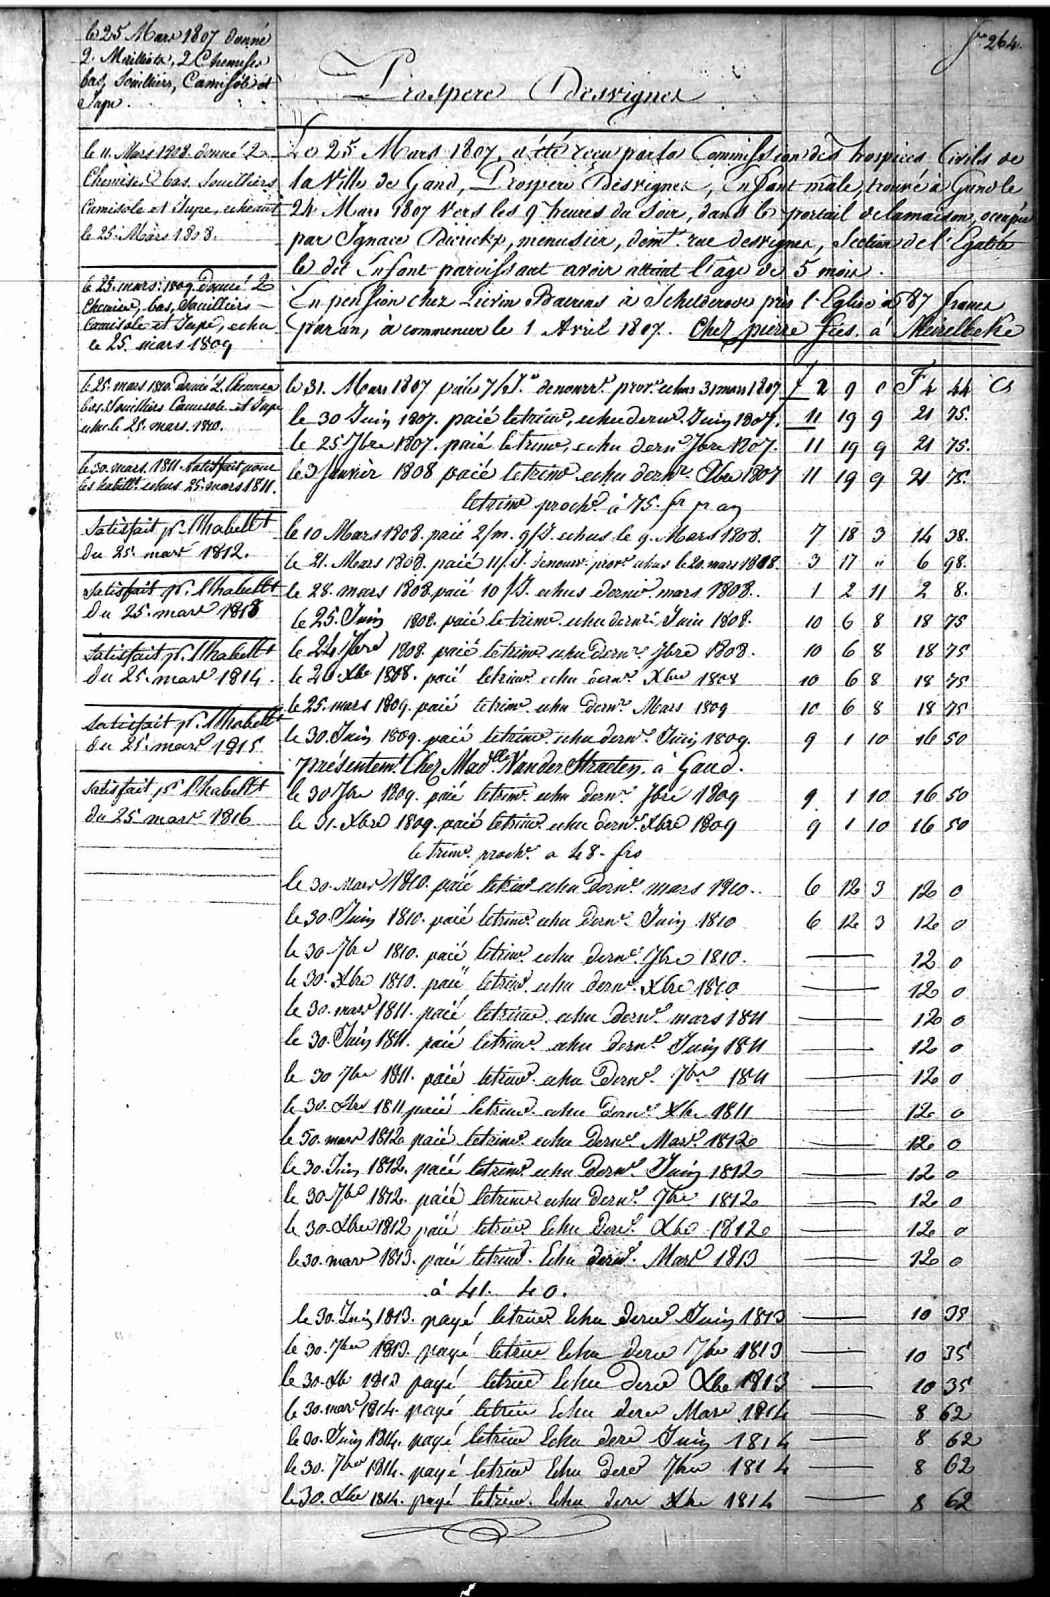 fo 264.
le 25 Mars 1807 donné
2. Meilliots, 2 Chemises
bas, Souilliers, Camisole et
Jupe.
le 11. Mars 1808. donné 2
Chemises bas. Souilliers
Camisole et Jupe, echeant
le 25. Mars 1808.
le 25. mars: 1809. Donné 2
Chemise, bas, Souilliers
Camisole et Jupe, echu
le 25. mars 1809
le 25. mars 1810. donné 2. Chemises
bas. Souilliers Camisole et Jupe
echu le 25. mars. 1810.
le 30. mars. 1811. Satisfait pour
les habillt. echus 25. mars 1811.
Satisfait pr. l'habellt
du 25. mars 1812.
Satisfait pr. l'habellt
du 25. mars 1813
Satisfait pr. l'habellt
du 25. mars 1814.
Satisfait pr. l'habellt
du 25. mars 1815.
Satisfait pr. l'habellt
du 25 mars 1816
Prospere Desvignes
Le 25 Mars 1807. a été reçu par la Commission des hospices Civils de
la Ville de Gand, Prospere Desvignes, Enfant mâle, trouvé à Gand le
24 Mars 1807 vers les 9 heures du soir, dans le portail de la maison, occupée
par Ignace Dierickx, menusier, demt. rue desvignes, Section de l'Egalité
le dit Enfant paroissant avoir atteint l'âge de 5 mois.
En pension chez Lievin Baerens à Schelderode près l'Eglise à 87 francs
par an, à commencer le 1 Avril 1807. Chez pierre Fies. à Meirelbeke
le 31. Mars 1807 paié 7/J.s de nourre. provre. echus 31 mars 1807 £ 2 9 0 F 4 44 Cs
le 30 Juin 1807. paié le trime, echu dernr. Juin 1807. 11 19 9 21 75.
le 25 7bre 1807. paié le trime, echu dernr. 7bre 1807. 11 19 9 21 75.
le 3 Janvier 1808 paié le trime echu dernr. Xbre 1807 11 19 9 21 75.
le trime proche. à 75. fr pr an
le 10 Mars 1808. paié 2/m. 9/J. echus le 9. Mars 1808. 7 18 3 14 38.
le 21. Mars 1808. paié 11/J. denourr. prove. echus le 20 mars 1808. 3 17 " 6 98.
le 28. mars 1808. paié 10/J. echus dernie. mars 1808. 1 2 11 2 8.
le 25. Juin 1808. paié le trime. echu dernr. Juin 1808. 10 6 8 18 75
le 24 7bre 1808. paié le trime. echu dernr. 7bre 1808. 10 6 8 18 75
le 26 Xbre 1808. paié le trime. echu dernr. Xbre 1808 10 6 8 18 75
le 25. mars 1809. paié le trime. echu dernr. Mars 1809 10 6 8 18 75
le 30. Juin 1809. paié le trime. echu dernr. Juin 1809. 9 1 10 16 50
présentemt. Chez Madlle. Van der Straeten, à Gand.
le 30 7bre 1809. paié le trime. echu dernr. 7bre 1809 9 1 10 16 50
le 31. Xbre 1809. paié le trime. echu dernr. Xbre 1809 9 1 10 16 50
le trime. proche. a 48. frs
le 30. Mars 1810. paié le trime. echu Dernr. mars 1810.. 6 12 3 12 0
le 30. Juin 1810. paié le trime. echu dernr. Juin 1810 6 12 3 12 0
le 30. 7bre 1810. paié le trime. echu dernr. 7bre 1810. 12 0
le 30. Xbre 1810. paié le trime. echu dernr. Xbre 1810. 12 0
le 30. mars 1811. paié le trime. echu dernr. mars 1811 12 0
le 30. Juin 1811. paié le trime. echu dernr. Juin 1811 12 0
le 30 7bre 1811. paié le trime. echu Dernr. 7bre 1811 12 0
le 30. Xbre 1811 paié le trime. echu Dernr. Xbre 1811 12 0
le 30. mars 1812 paié le trime. echu Dernr. Mars. 1812 12 0
le 30. Juin 1812. paié le trime. echu Dernr. Juin 1812 12 0
le 30. 7bre 1812. paié le trime echu Dernr. 7bre 1812 12 0
le 30. Xbre 1812 paié le trime Echu Dernr. Xbre 1812 12 0
le 30. mars 1813. paié le trime. Echu dernr. Mars 1813 12 0
à 41. 40.
le 30. Juin 1813. payé le trime Echu derne Juin 1813 10 35
le 30. 7bre 1813. payé le trime Echu derne 7bre 1813 10 35
le 30. Xbre 1813 payé le trime Echu derne Xbre 1813 10 35
le 30. mars 1814. payé le trime Echu derne Mars 1814 8 62
le 30. Juin 1814. payé le trime Echu derne Juin 1814 8 62
le 30. 7bre 1814. payé le trime Echu derne 7bre 1814 8 62
le 30. Xbre 1814. payé le trime. Echu derne Xbre 1814 8 62